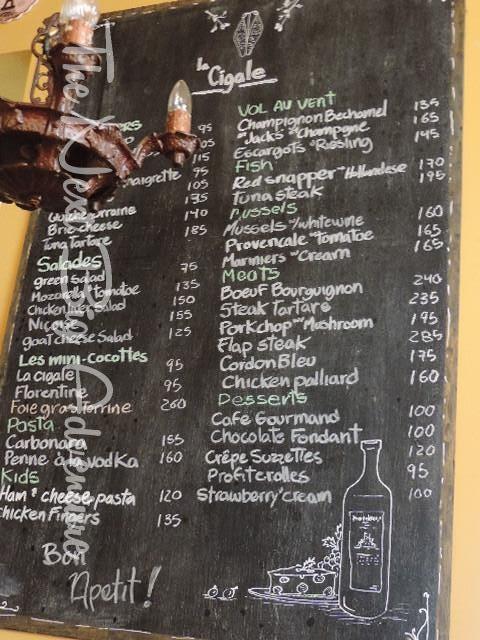 La
Cigale
ERS 95
105
115
naigrette 95
105
135
Quiche Lorraine 140
Brie cheese 185
Tuna Tartare
Salades
green Salad 75
Mozarella Tomatoe 135
Chicken liver Salad 150
Niçoise 155
goat cheese Salad 125
Les mini-cocottes
La cigale 95
Florentine 95
Foie gras Terrine 260
Pasta
Carbonara 155
Penne à la vodka 160
Kids
Ham & cheese pasta 120
chicken Fingers 135
Bon
Apetit!
VOL AU VENT
Champignon Bechamel 135
"Jacks" w/Champagne 165
Escargots w/Riesling 145
Fish
Red snapper w/Hollandese 170
Tuna steak 195
Mussels
Mussels w/whitewine 160
Provencale w/Tomatoe 165
Mariniers w/Cream 165
Meats
Boeuf Bourguignon 240
Steak Tartare 235
Porkchop w/Mushroom 195
Flap steak 285
Cordon Bleu 175
Chicken palliard 160
Desserts
Café Gourmand 100
Chocolate Fondant 100
Crêpe Suzettes 120
Profiterolles 95
Strawberry w/cream 100